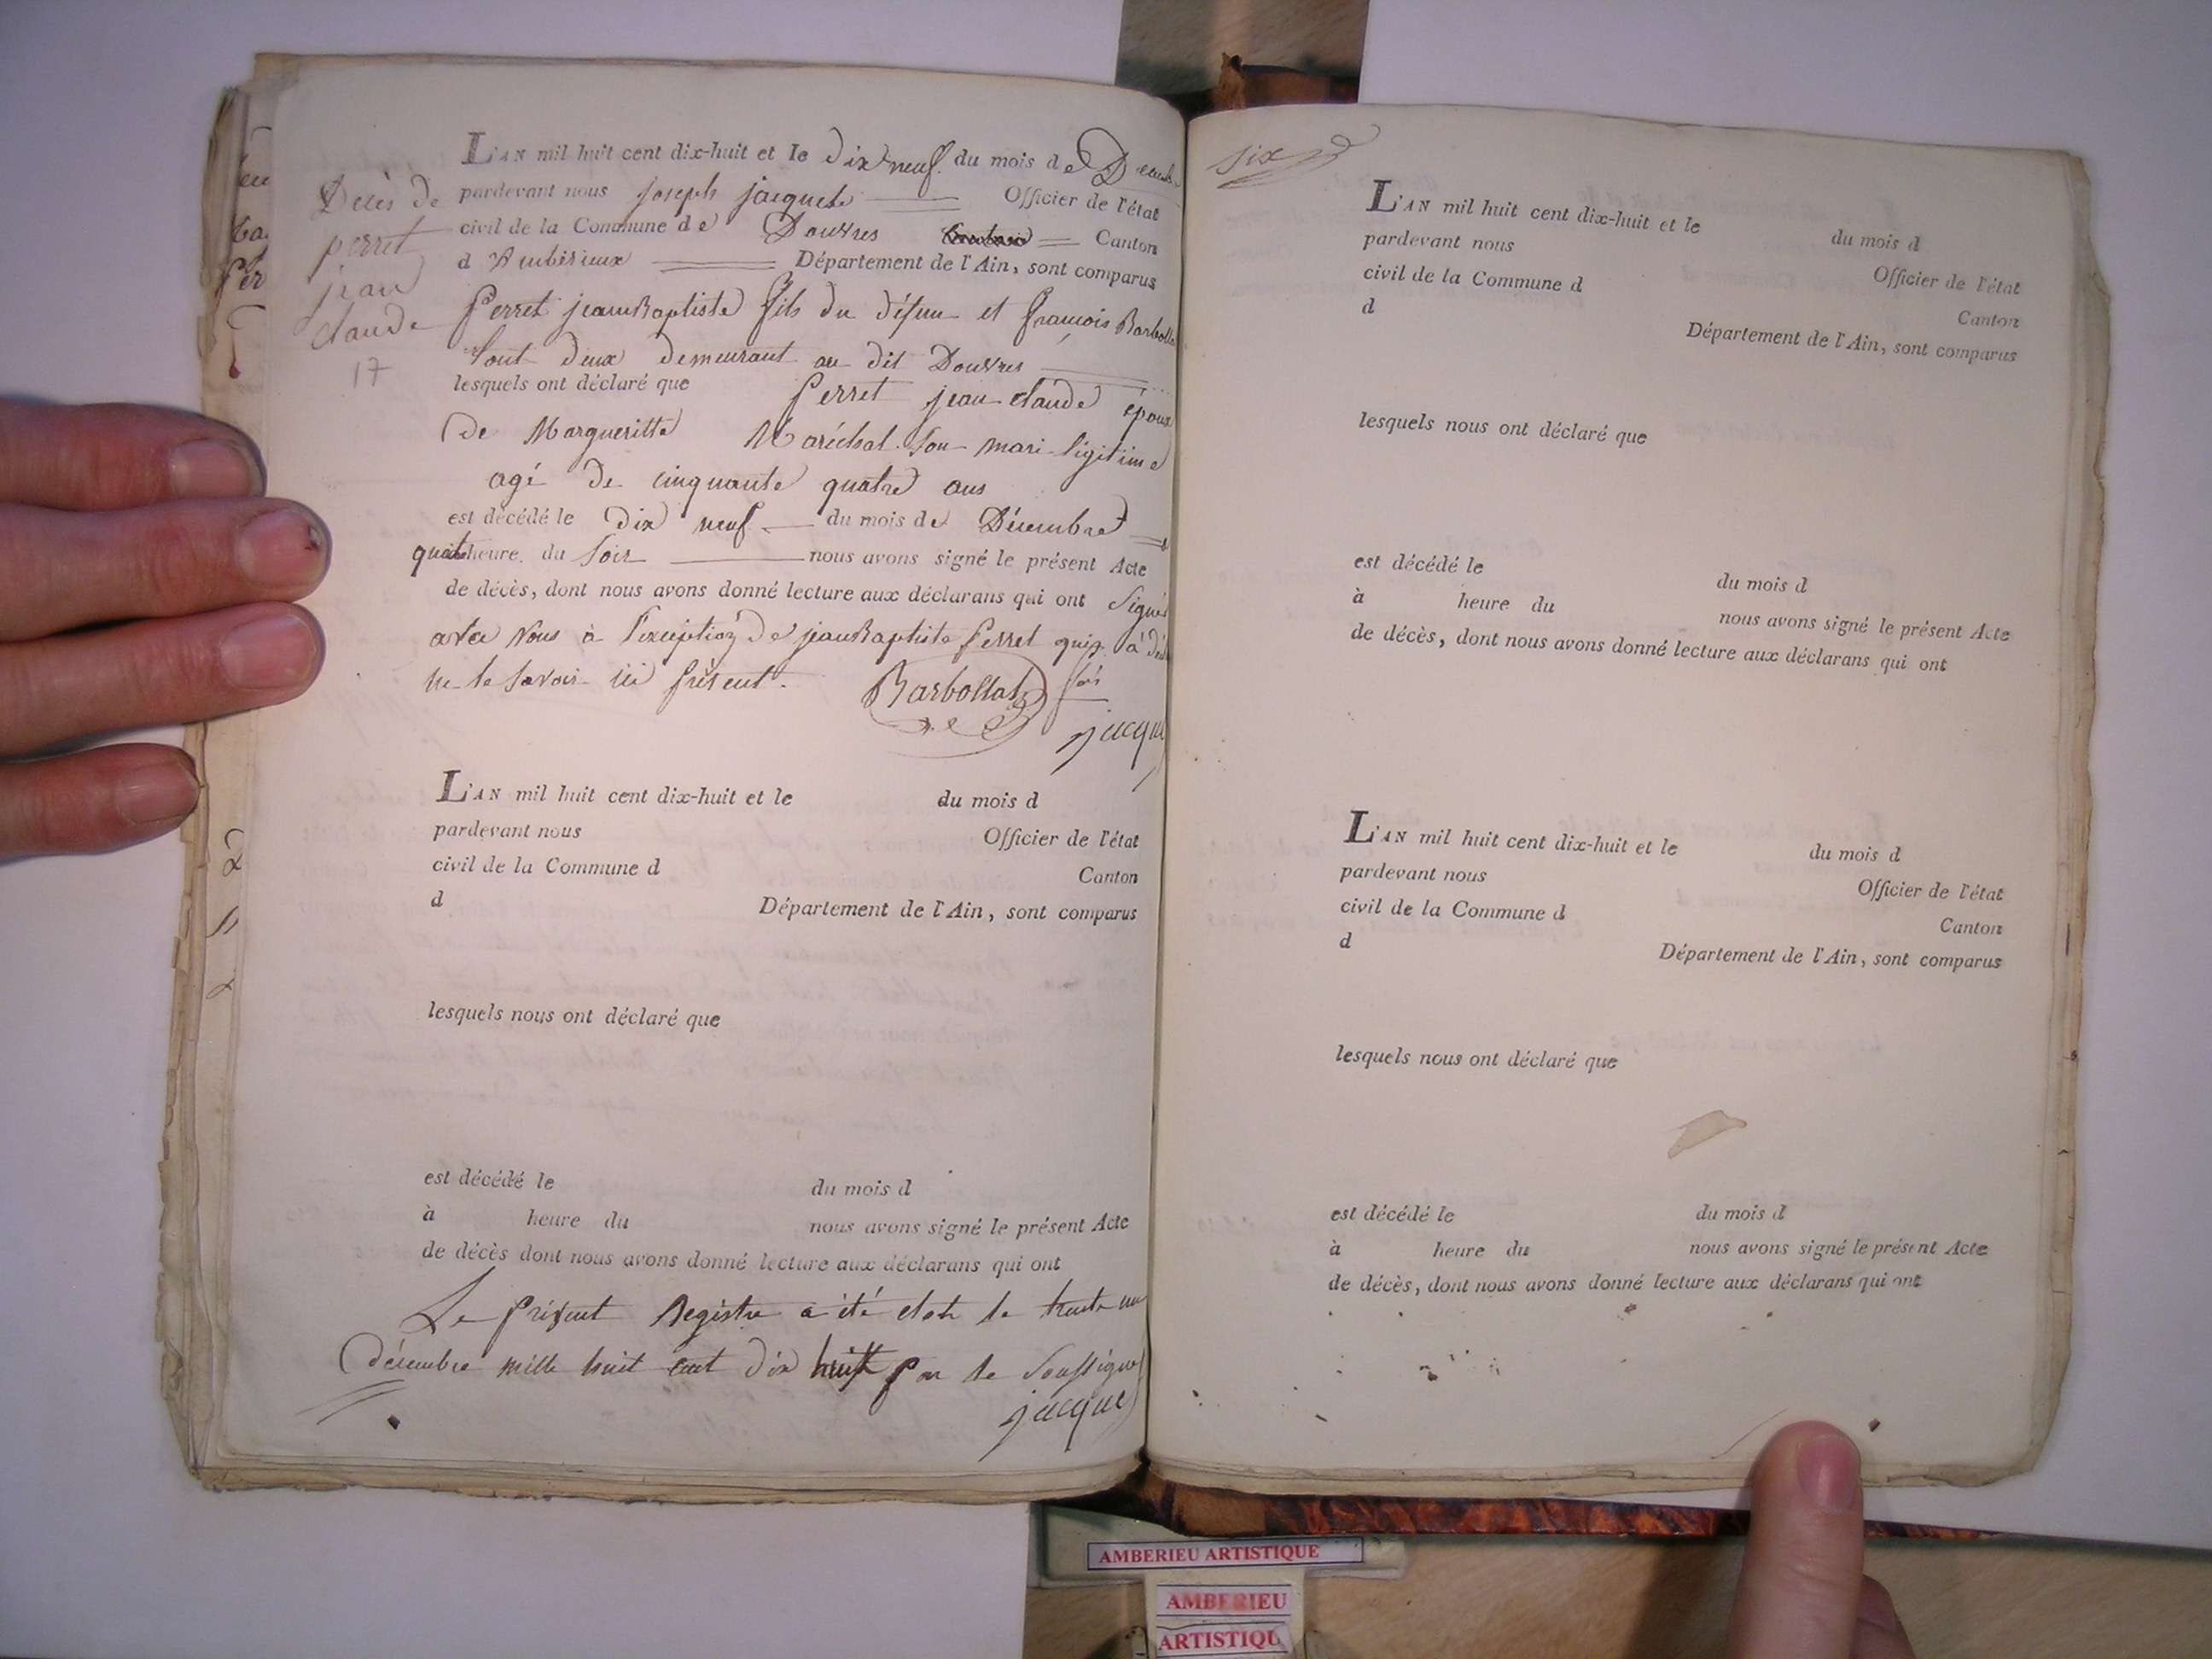 L'AN mil huit cent dix-huit et le dix neuf du mois de
pardevant nous joseph jacquet Officier de l'état
civil de la Commune de Douvres Canton
d Ambérieux Département de l'Ain, sont comparus
Perret jean Baptiste fils du défun et françois
tout deux demeurant au dit Douvres
lesquels ont déclaré que Perret jean claude époux
de Margueritte Maréchal son mari légitime
agé de cinquante quatre ans
est décédé le dix neuf du mois de Décembre
heure du Soir nous avons signé le présent Acte
de décès, dont nous avons donné lecture aux déclarans qui ont Signés
avec Nous à l'exception de jean Baptiste Perret qui à
ne le savoir présent.
Barbollat
Décès de
perret
jean
claude
17
L'AN mil huit cent dix-huit et le du mois d
pardevant nous Officier de l'état
civil de la Commune d Canton
d Département de l'Ain, sont comparus
lesquels nous ont déclaré que
est décédé le du mois d
à heure du nous avons signé le présent Acte
de décès dont nous avons donné lecture aux déclarans qui ont
Le présent Registre a été clot le trente un
décembre mille huit cent dix huit par le Soussigné
six
L'AN mil huit cent dix-huit et le du mois d
pardevant nous Officier de l'état
civil de la Commune d Canton
d Département de l'Ain, sont comparus
lesquels nous ont déclaré que
est décédé le du mois d
à heure du nous avons signé le présent Acte
de décès, dont nous avons donné lecture aux déclarans qui ont
L'AN mil huit cent dix-huit et le du mois d
pardevant nous Officier de l'état
civil de la Commune d Canton
d Département de l'Ain, sont comparus
lesquels nous ont déclaré que
est décédé le du mois d
à heure du nous avons signé le présent Acte
de décès, dont nous avons donné lecture aux déclarans qui ont
AMBERIEU ARTISTIQUE
AMBERIEU
ARTISTIQU